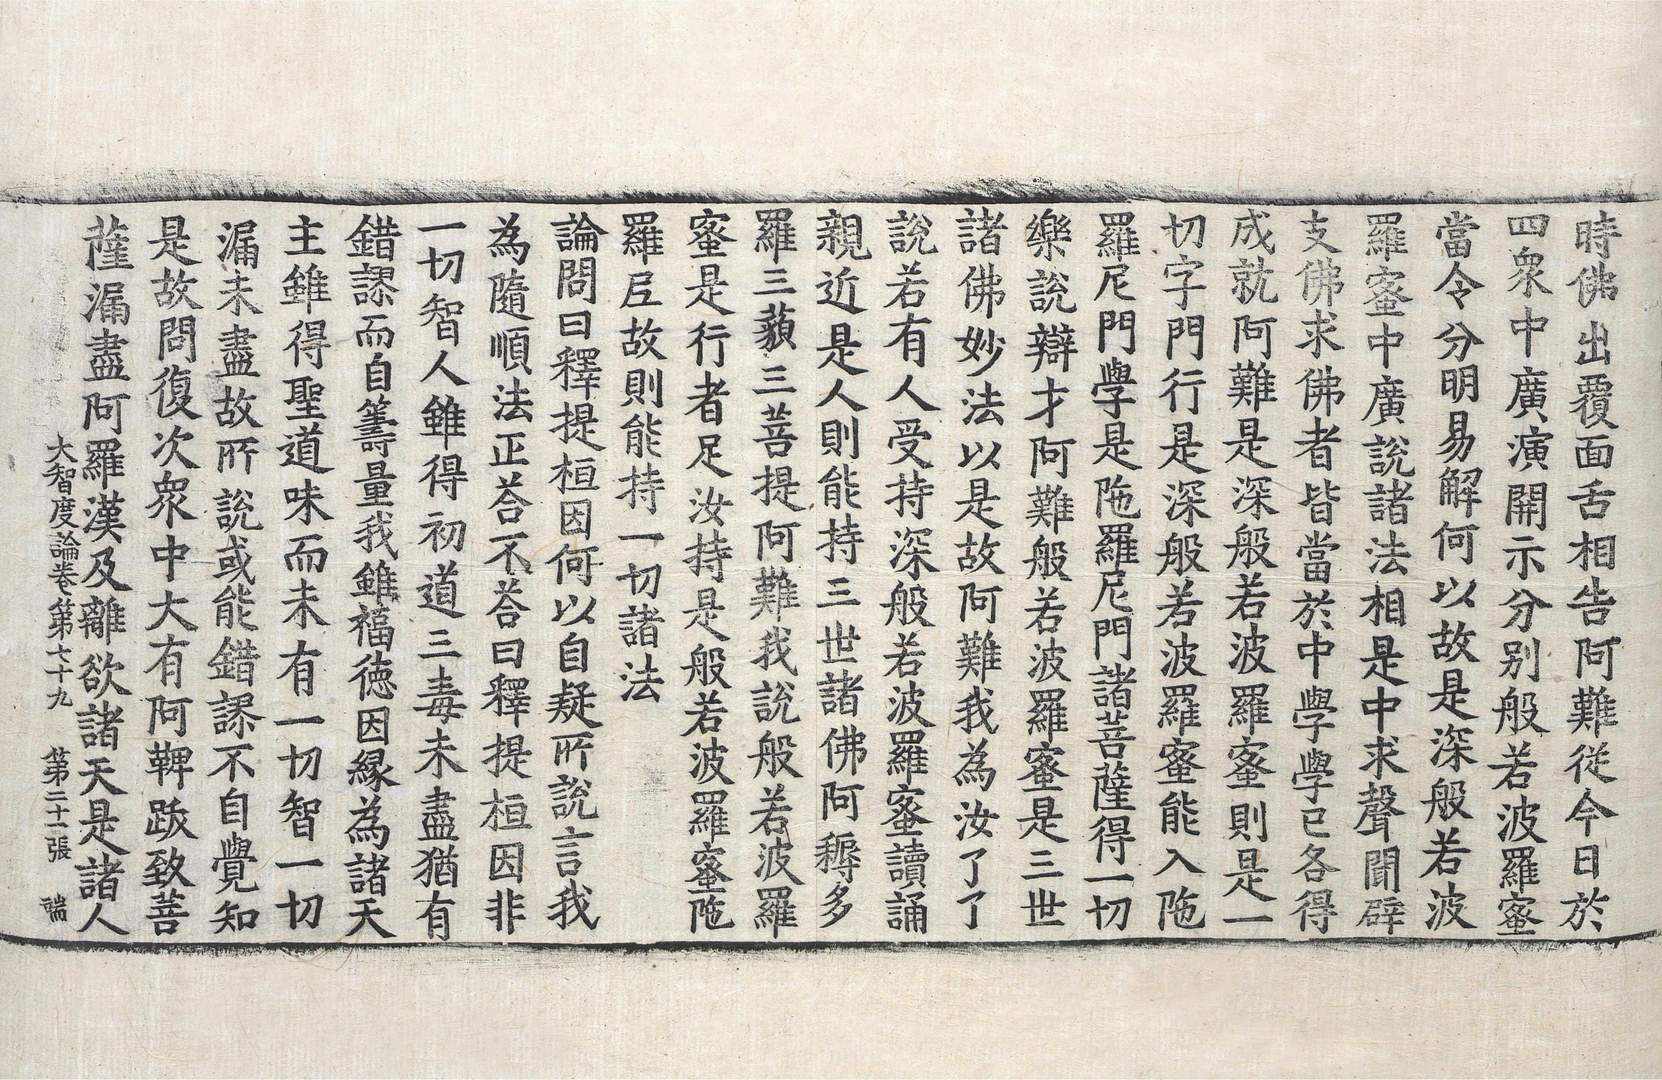 時佛出覆面舌相告阿難從今日於
四衆中廣演開示分別般若波羅蜜
當令分明易解何以故是深般若波
羅蜜中廣說諸法相是中求聲聞辟
支佛求佛者皆當於中學學已各得
成就阿難是深般若波羅蜜則是一
切字門行是深般若波羅蜜能入陁
羅尼門學是陁羅尼門諸菩薩得一切
樂說辯才阿難般若波羅蜜是三世
諸佛妙法以是故阿難我為汝了了
說若有人受持深般若波羅蜜讀誦
親近是人則能持三世諸佛阿耨多
羅三藐三菩提阿難我說般若波羅
蜜是行者足汝持是般若波羅蜜陁
羅尼故則能持一切諸法
論問曰釋提桓因何以自疑所說言我
為隨順法正荅不荅曰釋提桓因非
一切智人雖得初道三毒未盡猶有
錯謬而自籌量我雖福德因緣為諸天
主雖得聖道味而未有一切智一切
漏未盡故所說或能錯謬不自覺知
是故問復次衆中大有阿鞞跋致菩
薩漏盡阿羅漢及離欲諸天是諸人
大智度論卷第七十九 第二十二張 端